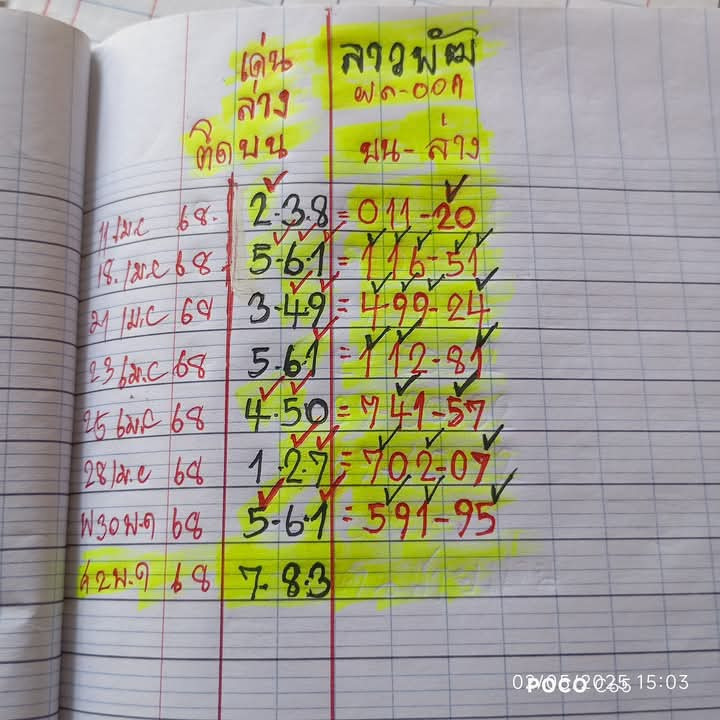 เด่น ลาวพัฒ
ล่าง ผล-ออก
ติดบน บน-ล่าง
11 เม.ย 68. 2.3.8 = 011-20
18. เม.ย 68. 5-6.1 = 116-51
21 เม.ย 68 3-49 = 499-24
23 เม.ย 68 5.6.1 = 112-81
25 เม.ย 68 4.50 = 741-57
28 เม.ย 68 1.2.7 = 702-07
พ30 พ.ค 68 5-6.1 = 591-95
ศ2พ.ค 68 7-8.3
02/05/2025 15:03
POCO C65